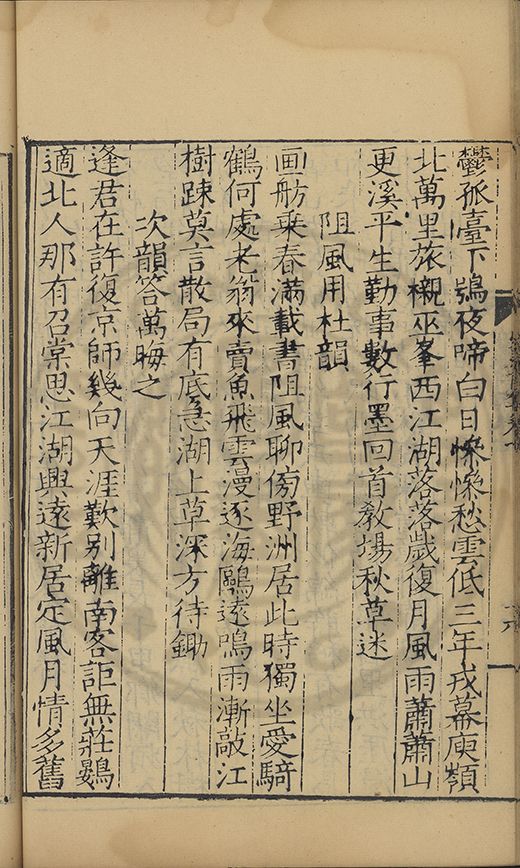 鬱孤臺下鴞夜啼白日慘慘愁雲低三年戎幕庾嶺
北萬里旅櫬巫峯西江湖落落歲復月風雨蕭蕭山
更溪平生勤事數行墨回首敎場秋草迷
阻風用杜韻
画舫乗春滿載書阻風聊傍野洲居此時獨坐愛騎
鶴何處老翁來賣魚飛雲漫逐海鷗遠鳴雨漸敲江
樹踈莫言散局有底急湖上草深方待鋤
次韻答萬晦之
逢君在許復京師幾向天涯歎别離南客詎無莊舄
適北人那有召棠思江湖興遠新居定風月情多舊